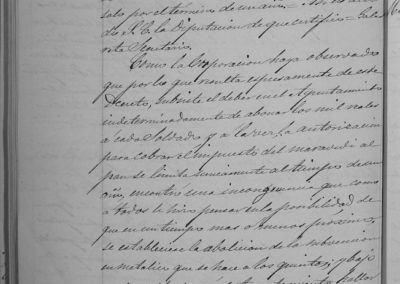 solo por el término de un año = Así lo acor
dó S. E. la Diputacion de que certifico =
orte Secretario.
Como la Corporacion haya observado
que por lo que resulta espresamente de este
Decreto, subsiste el deber en el Ayuntamiento
indeterminadamente de abonar los mil reales
á cada Soldado y á la vez la autorizacion
para cobrar el impuesto del maravedí al
pan se limita unicamente al tiempo de un
año, encontró una incongruencia que como
á todos le hizo pensar en la posibilidad de
que en un tiempo mas o menos proximo,
se estableciese la abolicion de la subvencion
en metalico que se hace á los quintos; y bajo